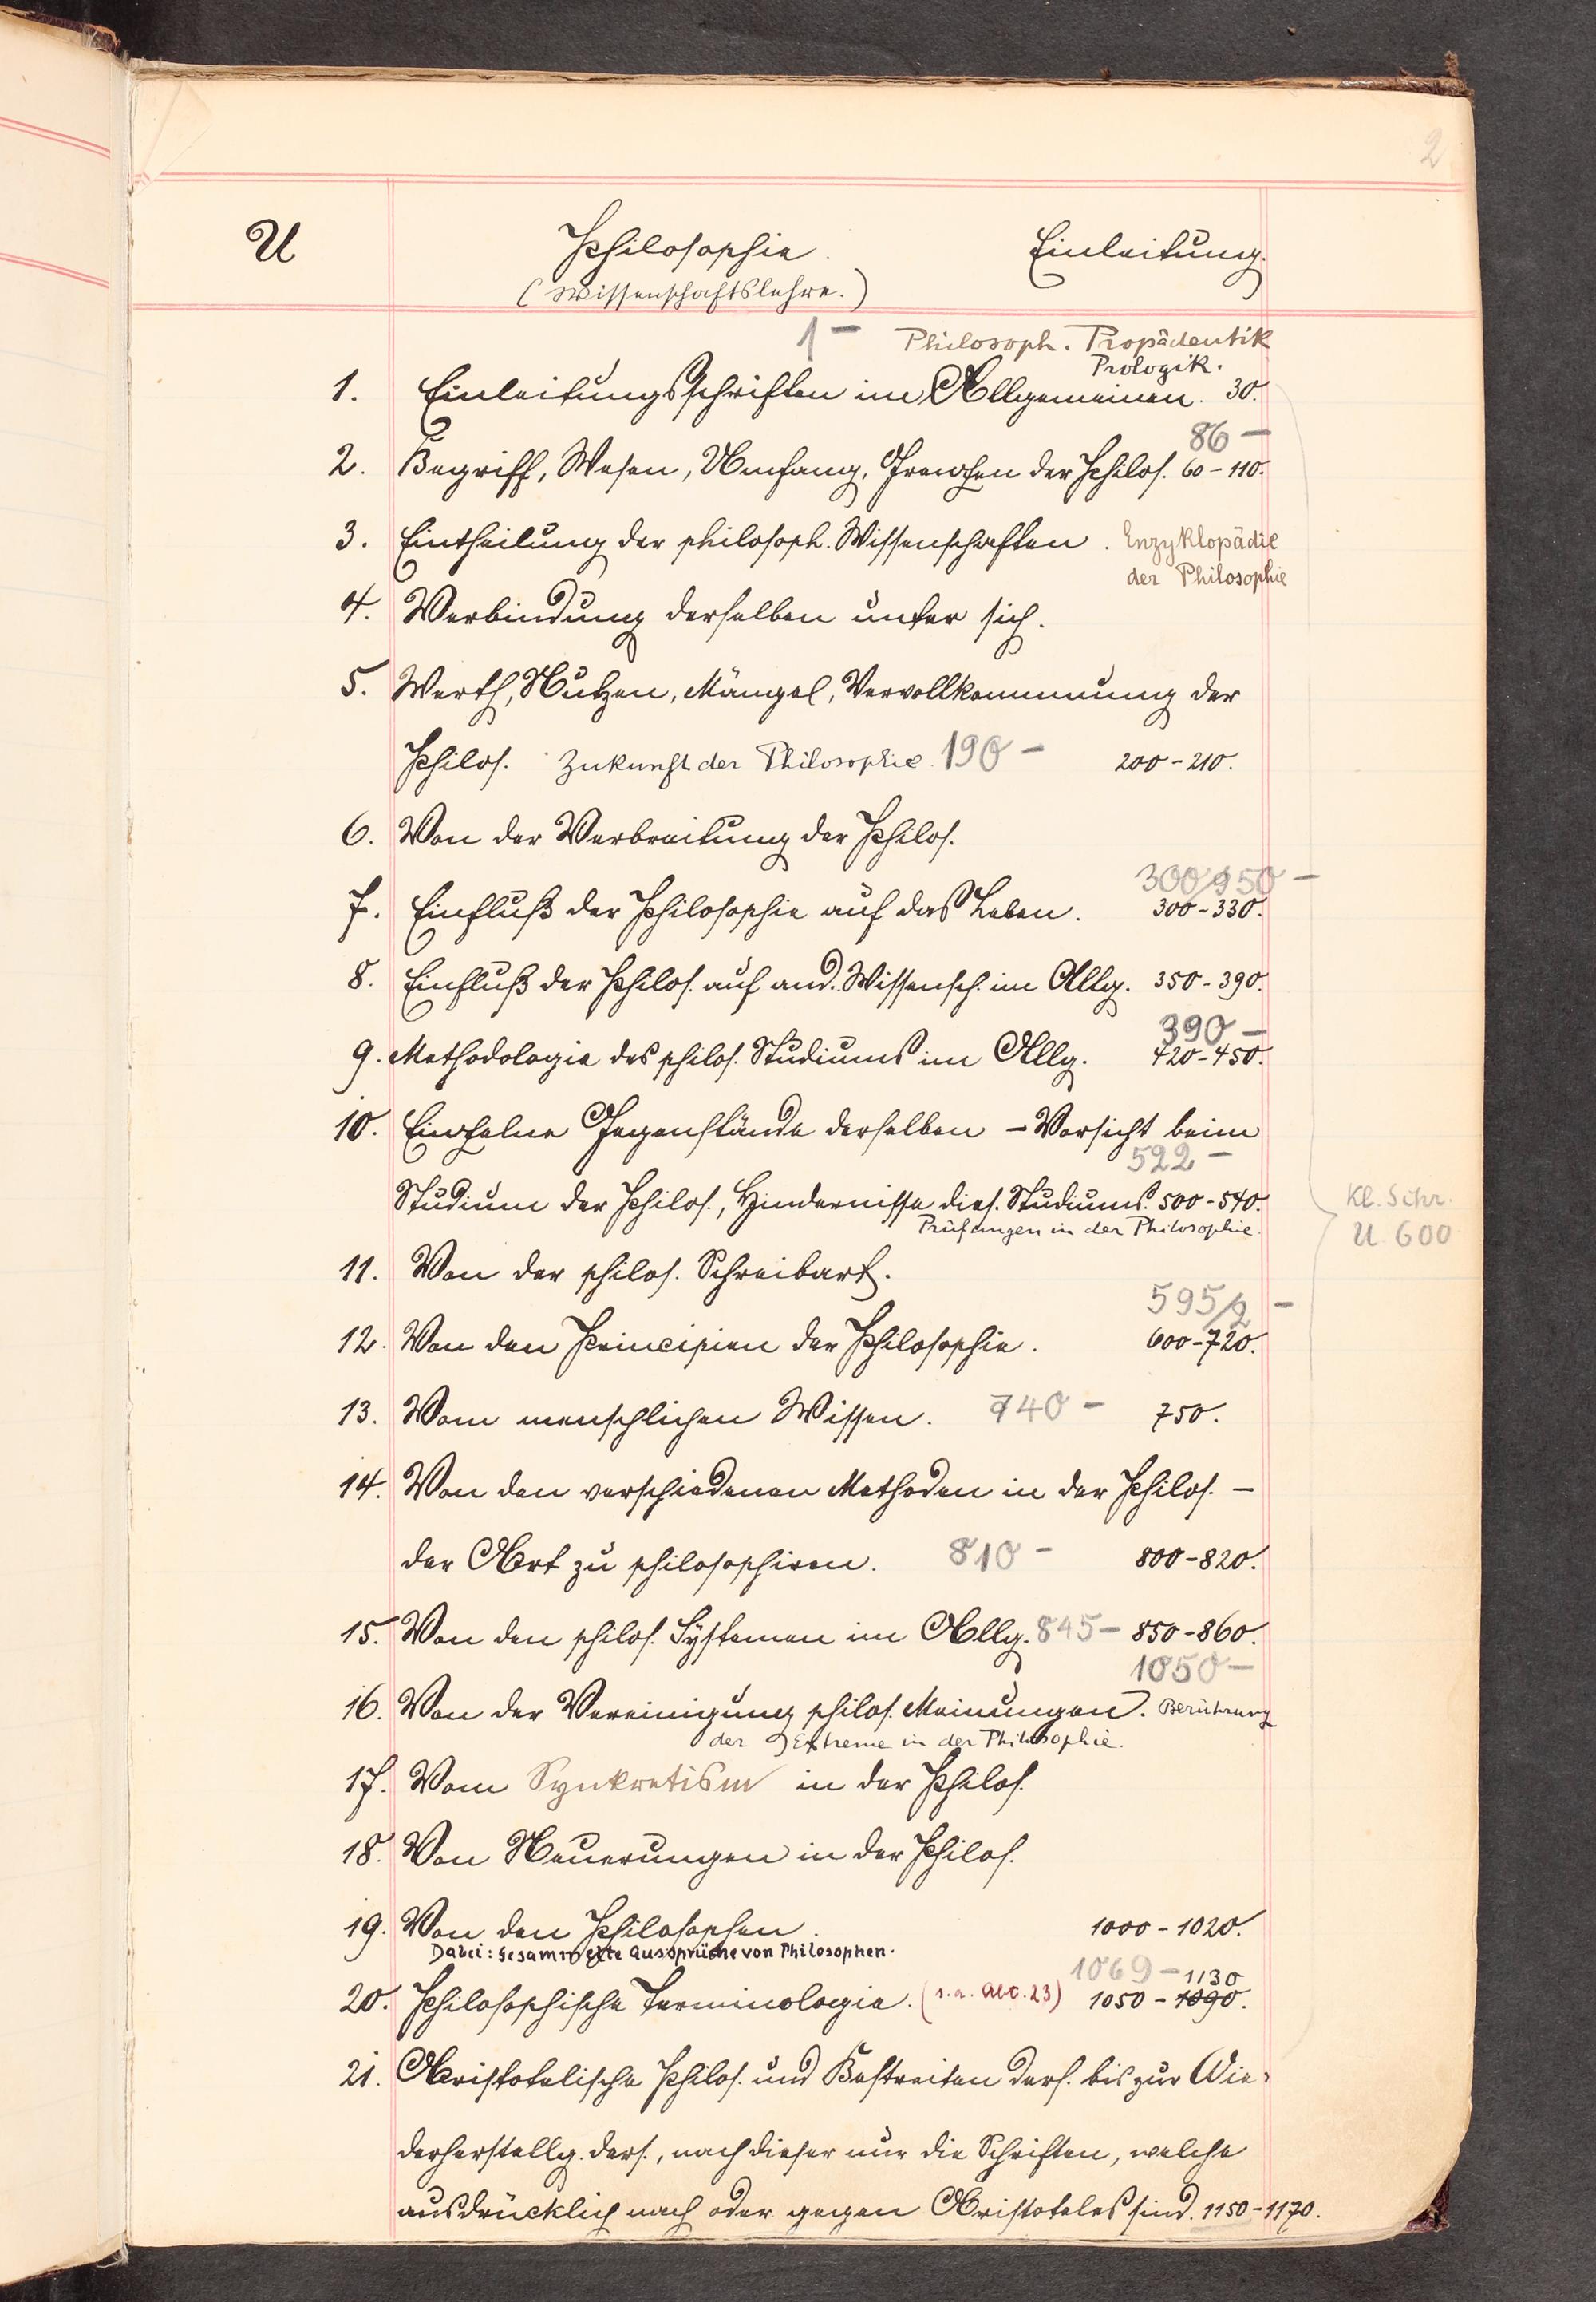 2
U Philosophie. Einleitung.
(Wissenschaftslehre.)
1 — Philosoph. Propädeutik
Prologik.
1. Einleitungsschriften im Allgemeinen. 30.
86 —
2. Begriff, Wesen, Umfang, Grenzen der Philos. 60 - 110.
3. Eintheilung der philosoph. Wissenschaften. Enzyklopädie
der Philosophie
4. Verbindung derselben unter sich.
5. Werth, Nutzen, Mängel, Vervollkommnung der
Philos. Zukunft der Philosophie. 190 — 200 - 210.
6. Von der Verbreitung der Philos.
300/950 —
7. Einfluß der Philosophie auf das Leben. 300 - 330.
8. Einfluß der Philos. auf and. Wissensch. im Allg. 350 - 390.
390 —
9. Methodologie des philos. Studiums im Allg. 420 - 450.
10. Einzelne Gegenstände derselben — Vorsicht beim
522 —
Studium der Philos., Hindernisse dies. Studiums. 500 - 540.
Prüfungen in der Philosophie.
Kl. Schr.
U 600
11. Von der philos. Schreibart.
595/2 —
12. Von den Principien der Philosophie. 600 - 720.
13. Vom menschlichen Wissen. 740 — 750.
14. Von den verschiedenen Methoden in der Philos. —
der Art zu philosophiren. 810 — 800 - 820.
15. Von den philos. Systemen im Allg. 845 — 850 - 860.
1050 —
16. Von der Vereinigung philos. Meinungen. Berührung
der Extreme in der Philosophie.
17. Vom Synkretism in der Philos.
18. Von Neuerungen in der Philos.
19. Von den Philosophen. 1000 - 1020.
Dabei: Gesammelte Aussprüche von Philosophen.
1069 — 1130
20. Philosophische Terminologie. (s. a. Alc. 23) 1050 - 1090.
21. Aristotelische Philos. und Bestreiten ders. bis zur Wie-
derherstellg. ders., nach dieser nur die Schriften, welche
ausdrücklich nach oder gegen Aristoteles sind. 1150 - 1170.